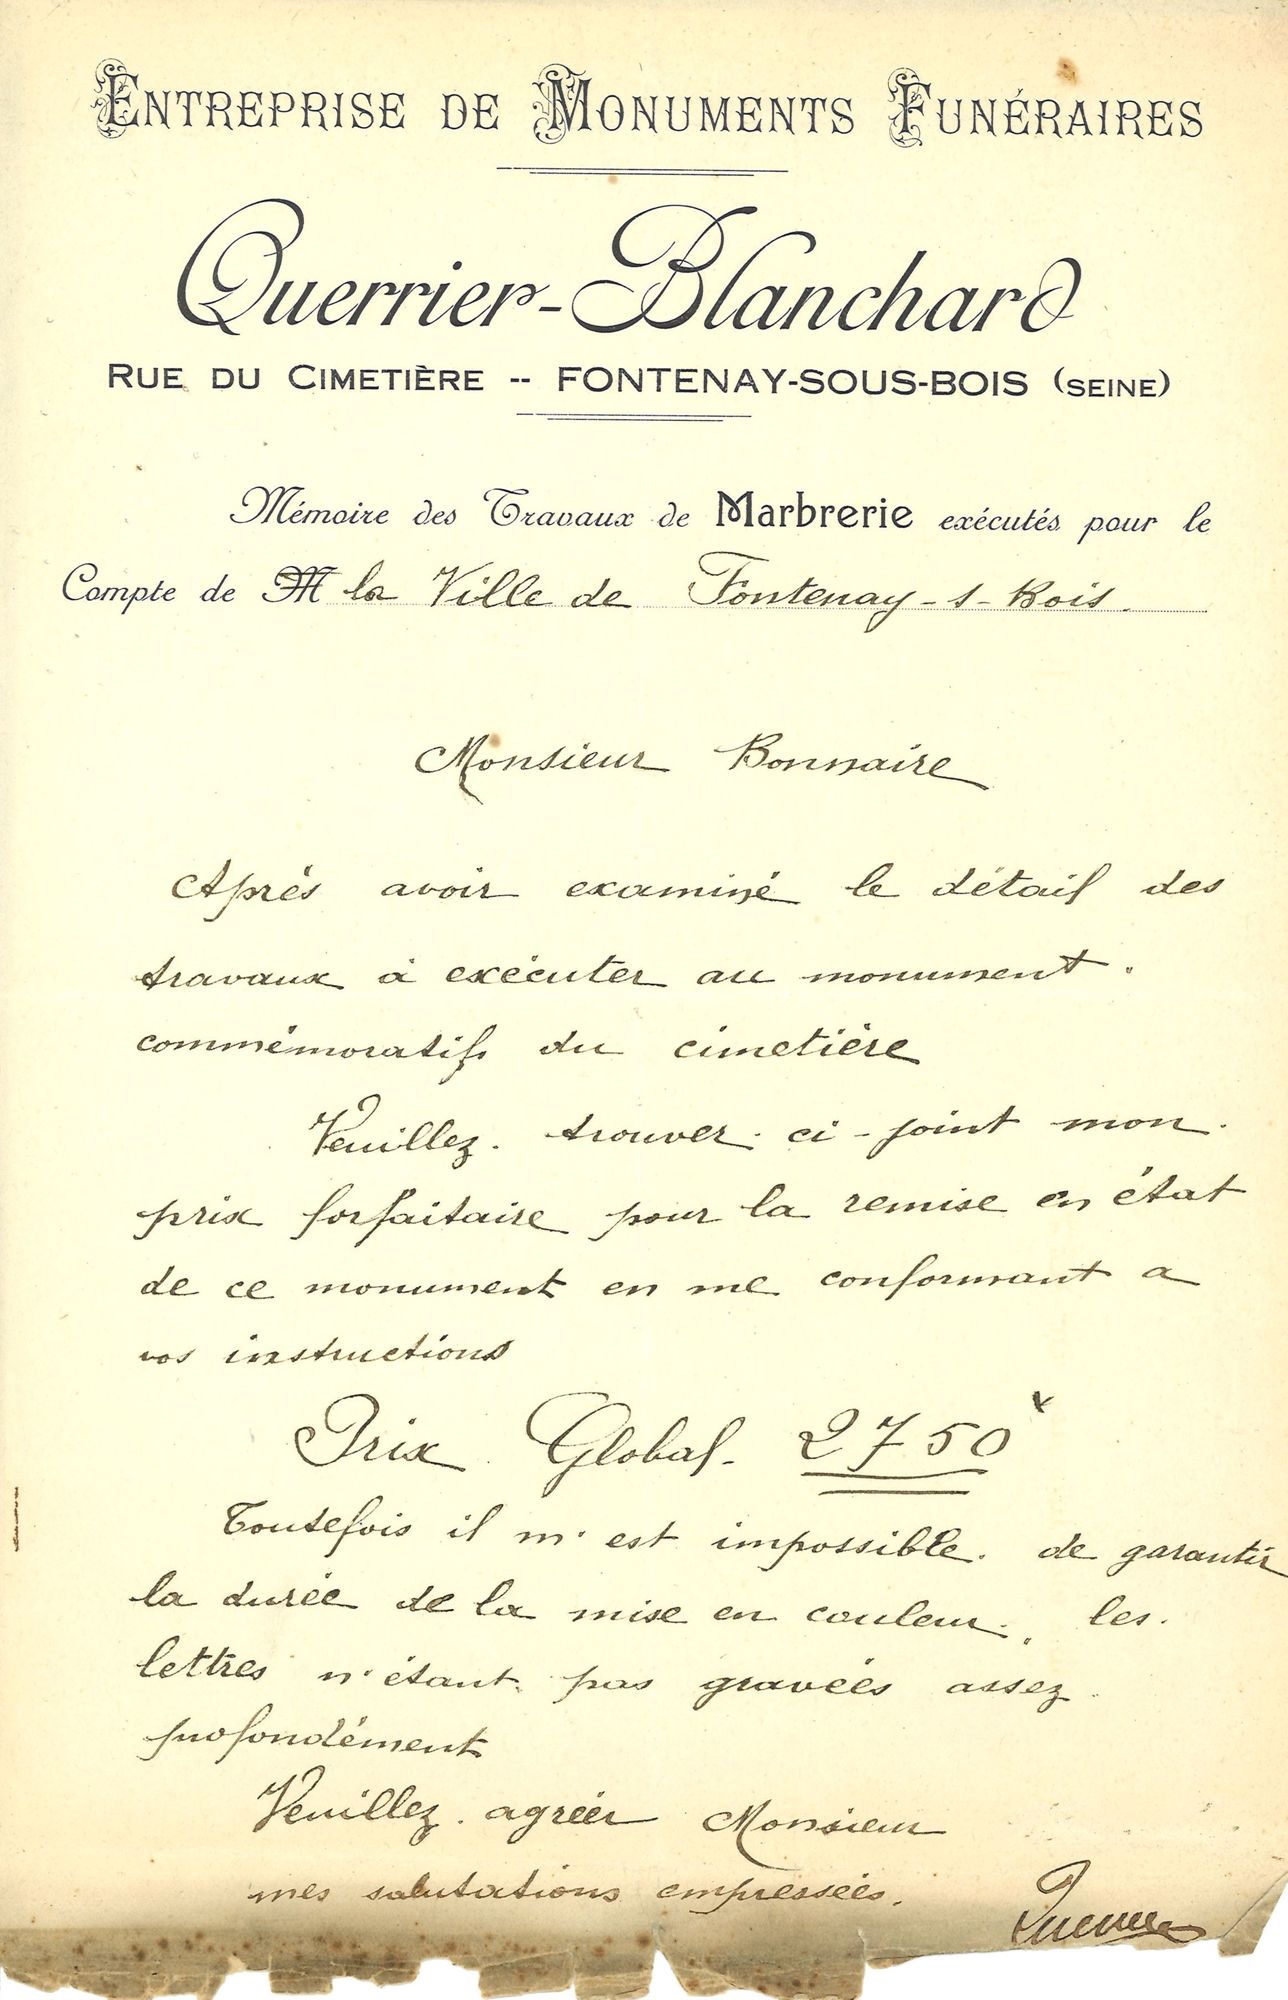 ENTREPRISE DE MONUMENTS FUNÉRAIRES
Querrier-Blanchard
RUE DU CIMETIÈRE -- FONTENAY-SOUS-BOIS (SEINE)
Mémoire des Travaux de Marbrerie exécutés pour le
Compte de M la Ville de Fontenay-s-Bois.
Monsieur Bonnaire
Aprés avoir examiné le détail des
travaux à exécuter au monument.
commémoratif du cimetière
Veuillez. trouver. ci-joint mon.
prix forfaitaire pour la remise en état
de ce monument en me conformant a
vos instructions
Prix Global. 2750
Toutefois il m'est impossible. de garantir
la durée de la mise en couleur, les.
lettres n'étant pas gravées assez.
profondément
Veuillez. agréer Monsieur
mes salutations empressées.
Querrier